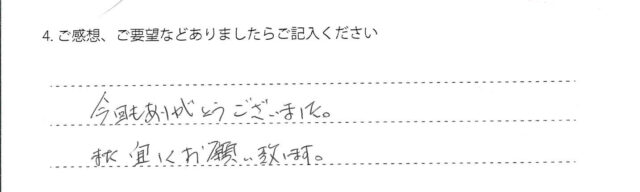 4. ご感想、ご要望などありましたらご記入ください
今回もありがとうございました。
また宜しくお願い致します。